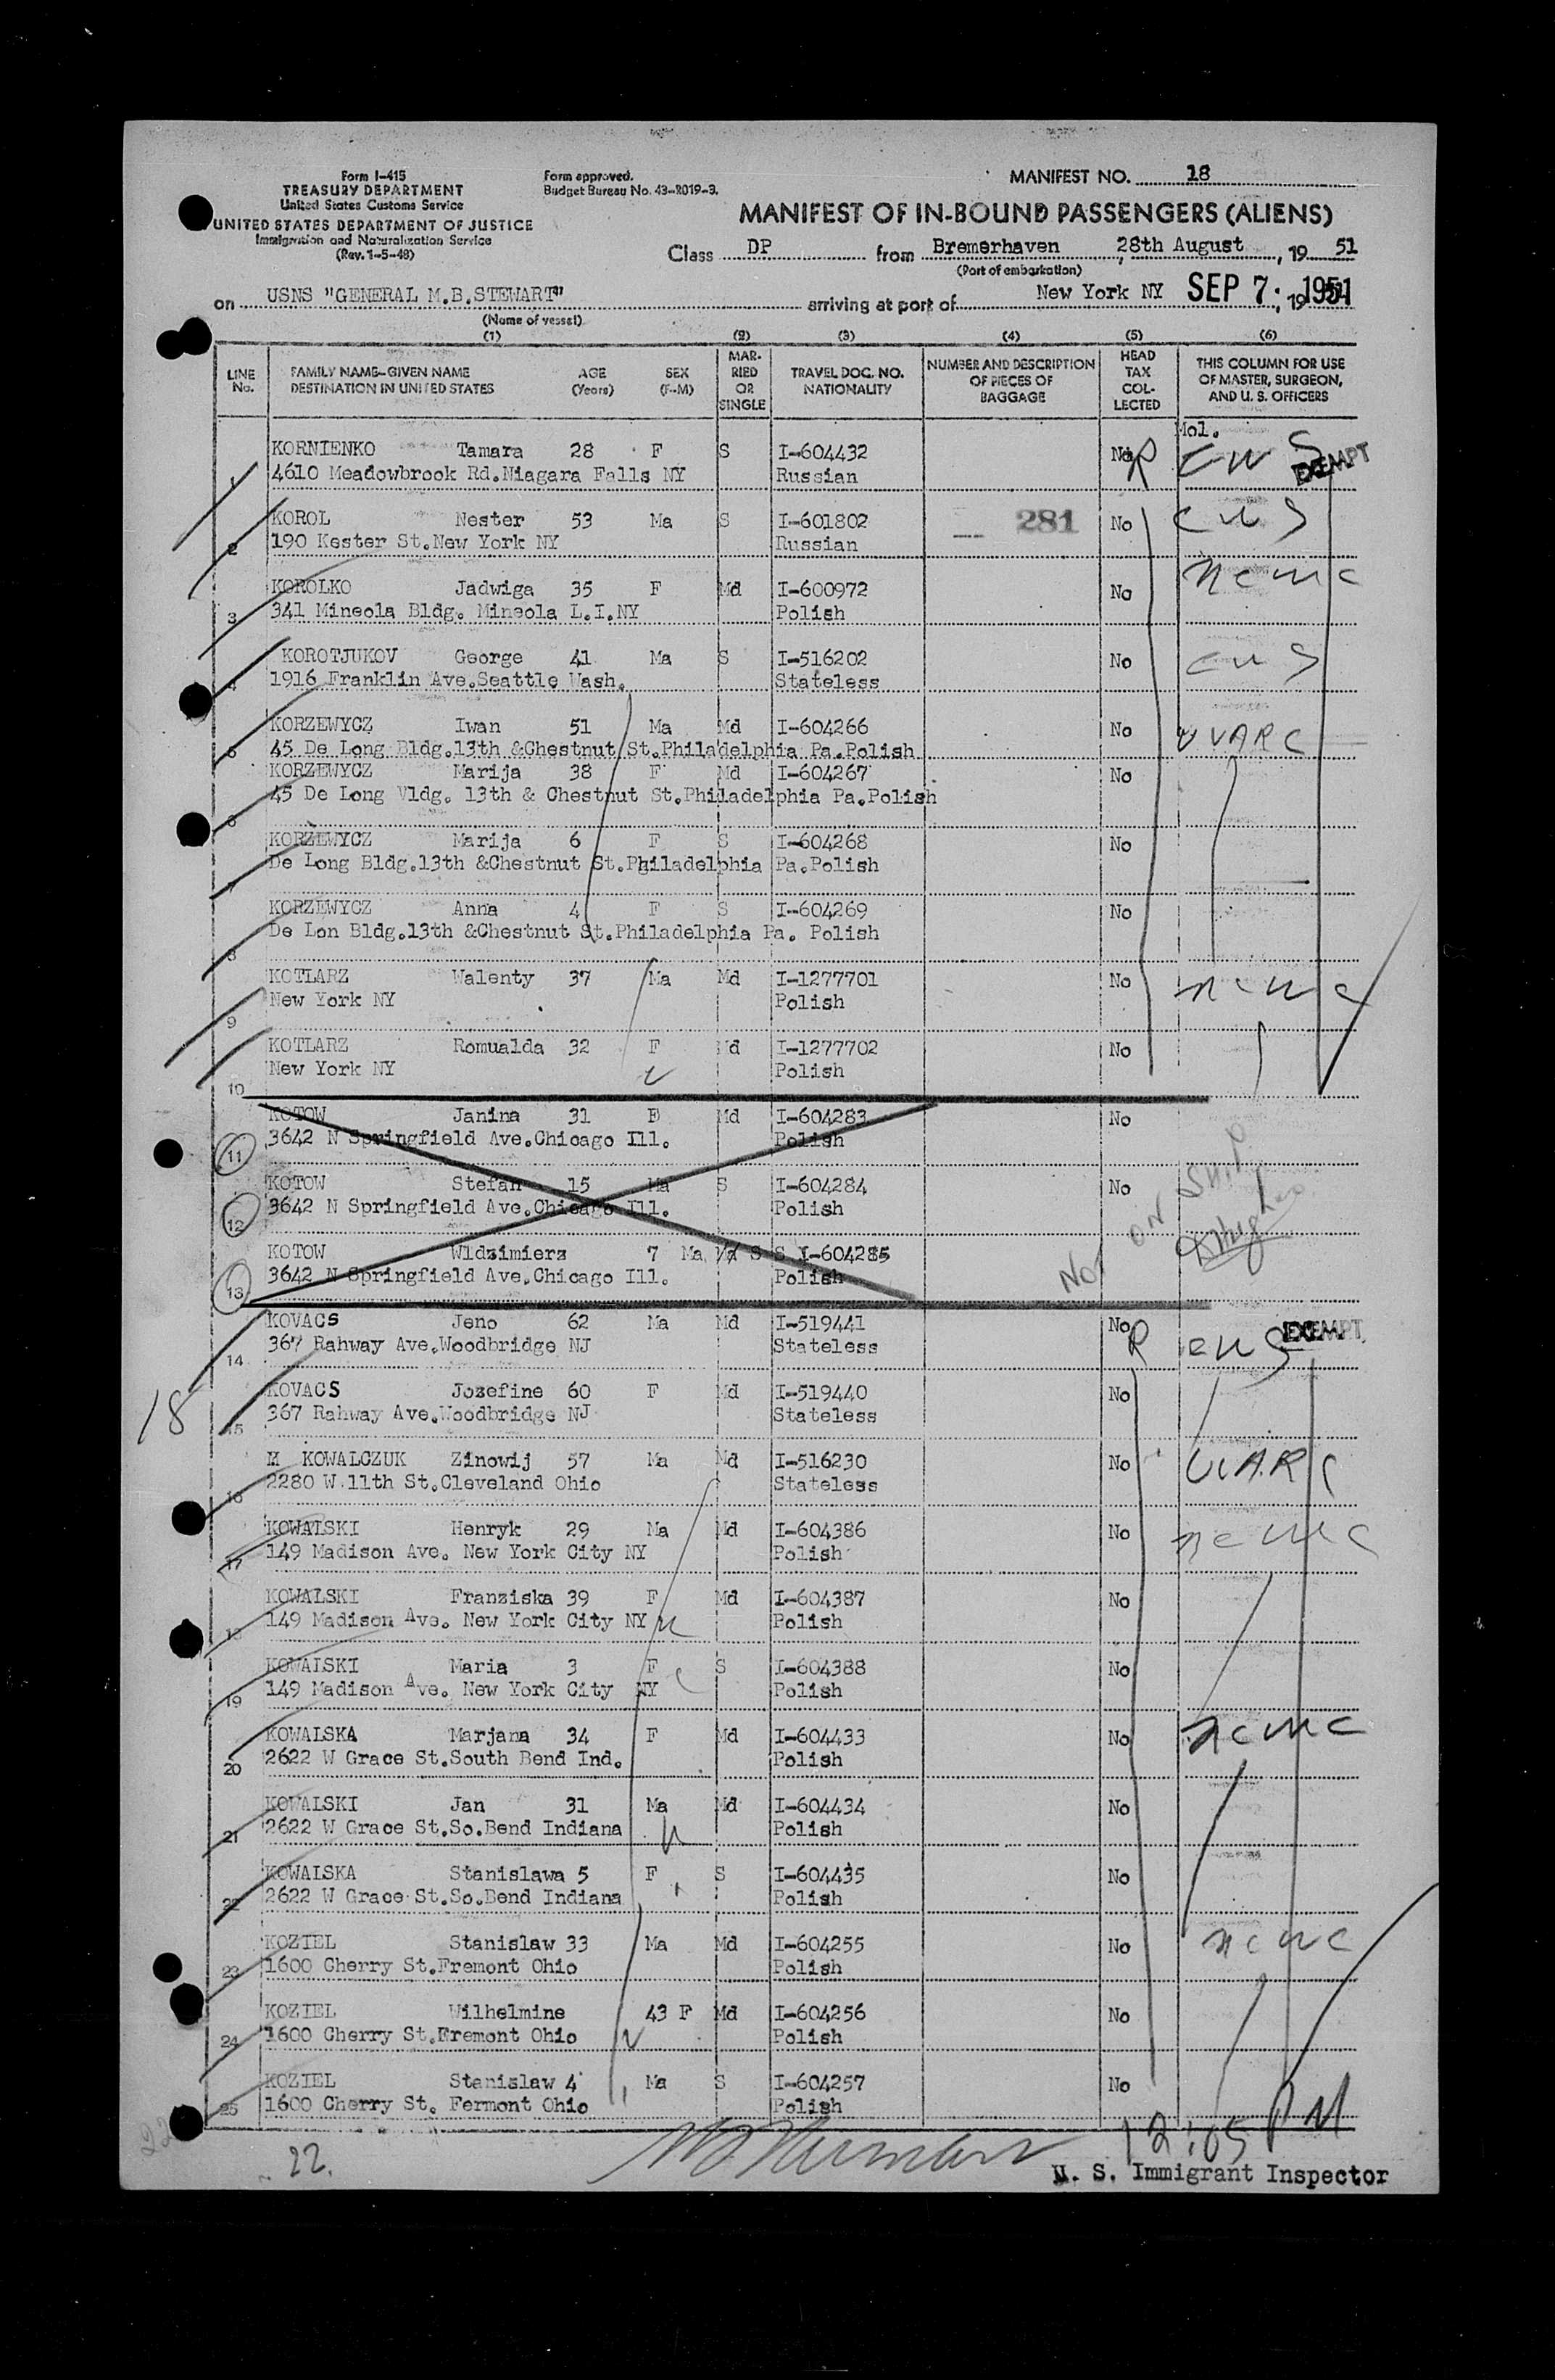 Form I-415
TREASURY DEPARTMENT
United States Customs Service
UNITED STATES DEPARTMENT OF JUSTICE
Immigration and Naturalization Service
(Rev. 1-5-48)
Form approved.
Budget Bureau No. 43-R019-3.
MANIFEST NO. 18
MANIFEST OF IN-BOUND PASSENGERS (ALIENS)
Class DP from Bremerhaven, 28th August, 19 51
(Port of embarkation)
on USNS "GENERAL M.B.STEWART" arriving at port of New York NY SEP 7, 1951
(Name of vessel)
(1) (2) (3) (4) (5) (6)
LINE No. FAMILY NAME-GIVEN NAME DESTINATION IN UNITED STATES AGE (Years) SEX (F-M) MARRIED OR SINGLE TRAVEL DOC. NO. NATIONALITY NUMBER AND DESCRIPTION OF PIECES OF BAGGAGE HEAD TAX COLLECTED THIS COLUMN FOR USE OF MASTER, SURGEON, AND U. S. OFFICERS
Mol.
KORNIENKO Tamara 28 F S I-604432 No R CWS EXEMPT
1 4610 Meadowbrook Rd.Niagara Falls NY Russian
KOROL Nester 53 Ma S I-601802 281 No CWS
2 190 Kester St.New York NY Russian
KOROLKO Jadwiga 35 F Md I-600972 No ncwc
3 341 Mineola Bldg. Mineola L.I.NY Polish
KOROTJUKOV George 41 Ma S I-516202 No CWS
4 1916 Franklin Ave.Seattle Wash. Stateless
KORZEWYCZ Iwan 51 Ma Md I-604266 No UUARC
5 45 De Long Bldg.13th &Chestnut St.Philadelphia Pa.Polish
KORZEWYCZ Marija 38 F Md I-604267 No
6 45 De Long Vldg. 13th & Chestnut St.Philadelphia Pa.Polish
KORZEWYCZ Marija 6 F S I-604268 No
7 De Long Bldg.13th &Chestnut St.Philadelphia Pa.Polish
KORZEWYCZ Anna 4 F S I-604269 No
8 De Lon Bldg.13th &Chestnut St.Philadelphia Pa. Polish
KOTLARZ Walenty 37 Ma Md I-1277701 No ncwc
9 New York NY Polish
KOTLARZ Romualda 32 F Md I-1277702 No
10 New York NY Polish
KOTOW Janina 31 F Md I-604283 No
11 3642 N Springfield Ave.Chicago Ill. Polish
KOTOW Stefan 15 Ma S I-604284 No
12 3642 N Springfield Ave.Chicago Ill. Polish
NOT ON SHIP
KOTOW Wldzimierz 7 Ma S S I-604285
13 3642 N Springfield Ave.Chicago Ill. Polish
KOVACS Jeno 62 Ma Md I-519441 No R CWS EXEMPT
14 367 Rahway Ave.Woodbridge NJ Stateless
18
KOVACS Jozefine 60 F Md I-519440 No
15 367 Rahway Ave.Woodbridge NJ Stateless
M KOWALCZUK Zinowij 57 Ma Md I-516230 No UUARC
16 2280 W.11th St.Cleveland Ohio Stateless
KOWALSKI Henryk 29 Ma Md I-604386 No ncwc
17 149 Madison Ave. New York City NY Polish
KOWALSKI Franziska 39 F Md I-604387 No
18 149 Madison Ave. New York City NY Polish
KOWALSKI Maria 3 F S I-604388 No
19 149 Madison Ave. New York City NY Polish
KOWALSKA Marjana 34 F Md I-604433 No ncwc
20 2622 W Grace St.South Bend Ind. Polish
KOWALSKI Jan 31 Ma Md I-604434 No
21 2622 W Grace St.So.Bend Indiana Polish
KOWALSKA Stanislawa 5 F S I-604435 No
22 2622 W Grace St.So.Bend Indiana Polish
KOZIEL Stanislaw 33 Ma Md I-604255 No ncwc
23 1600 Cherry St.Fremont Ohio Polish
KOZIEL Wilhelmine 43 F Md I-604256 No
24 1600 Cherry St.Fremont Ohio Polish
KOZIEL Stanislaw 4 Ma S I-604257 No
25 1600 Cherry St. Fermont Ohio Polish
12:05 PM
22.
U. S. Immigrant Inspector